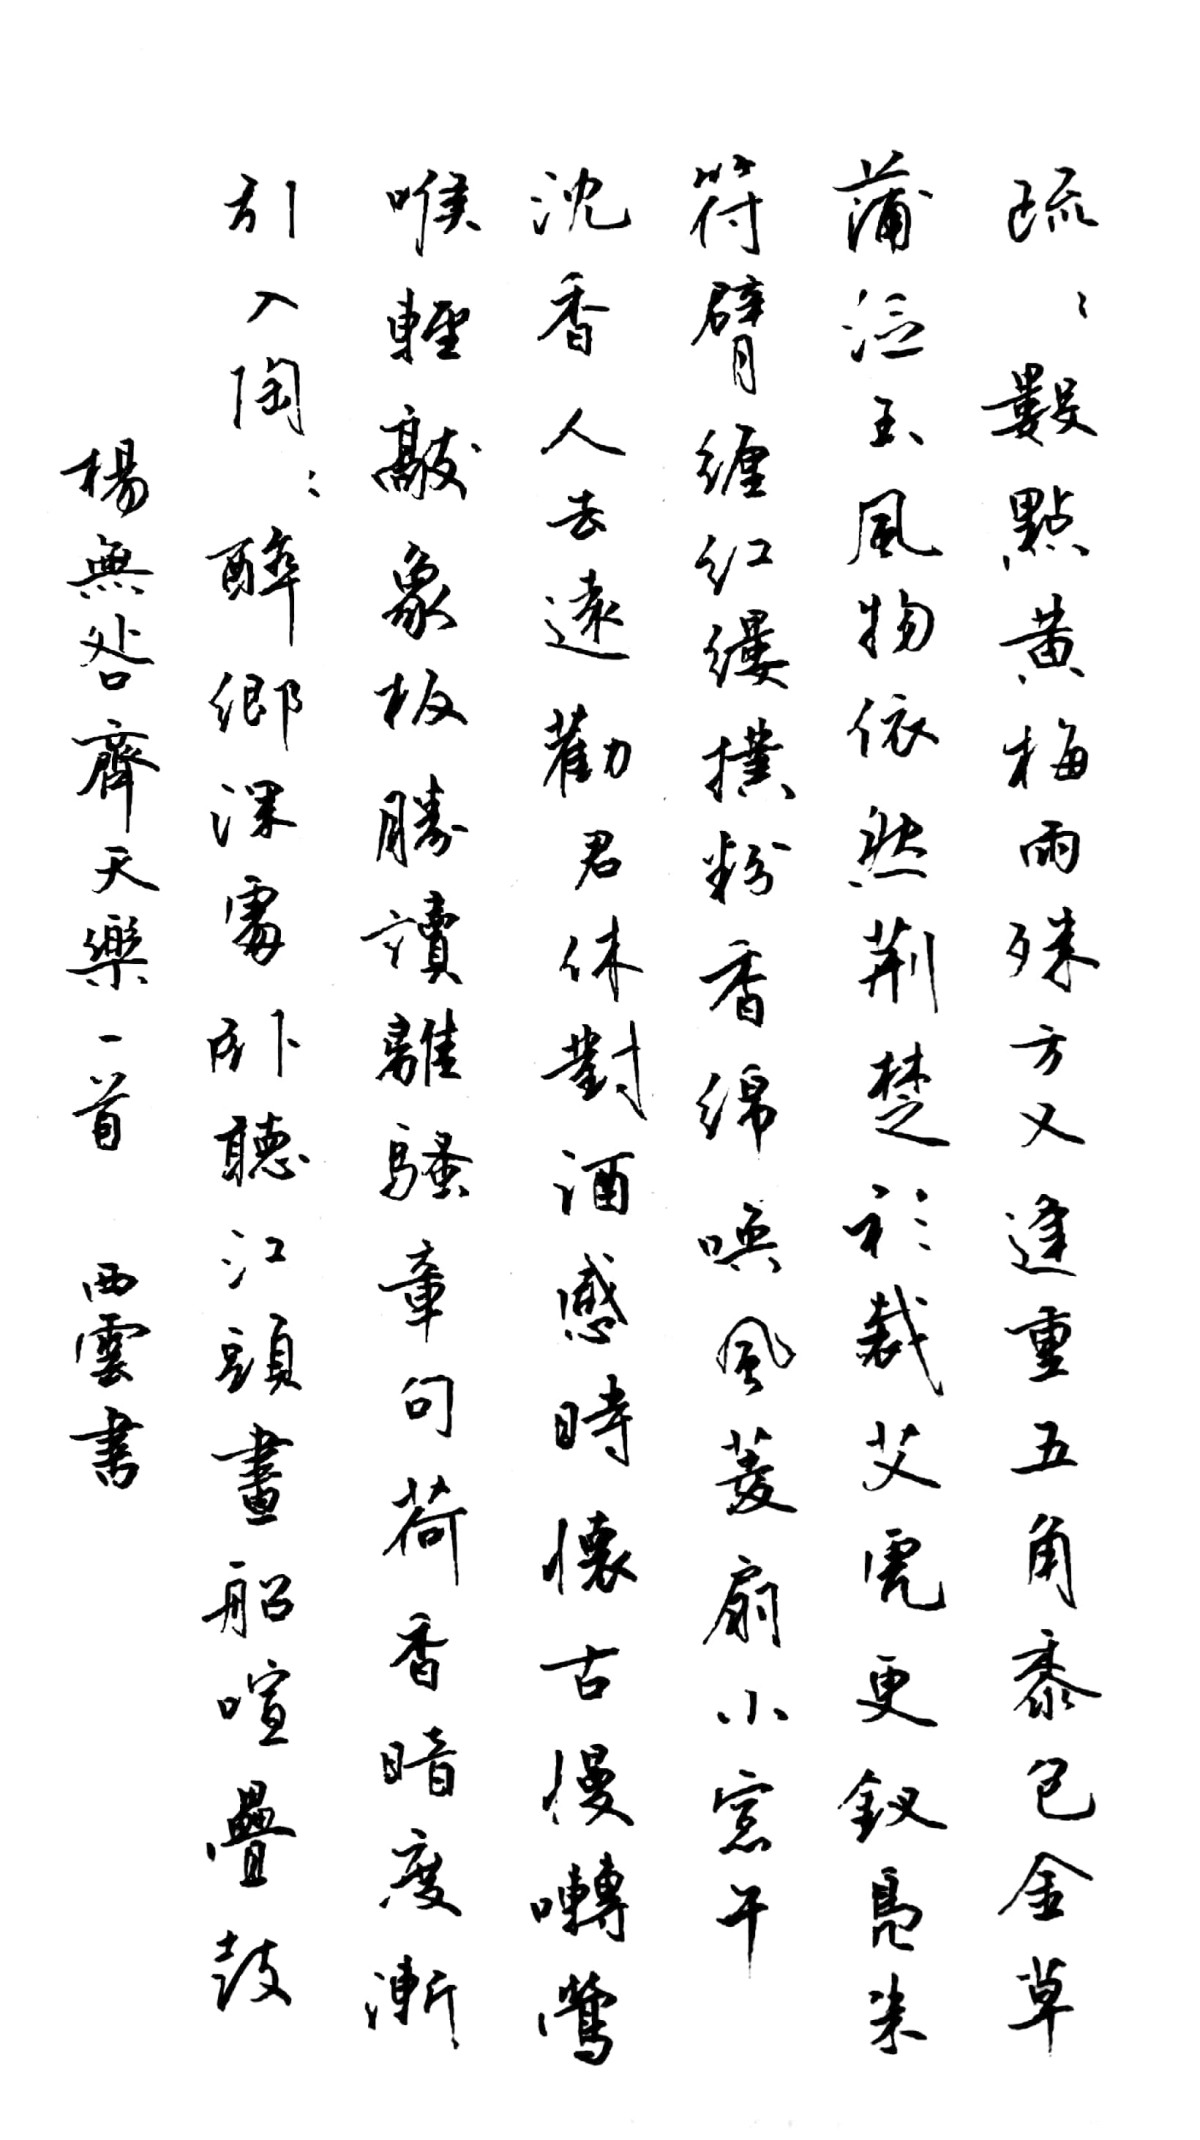 疏〻數點黃梅雨殊方又逢重五角黍包金草
蒲泛玉風物依然荊楚衫裁艾虎更釵裊朱
符臂纏紅縷撲粉香綿喚風菱扇小窓午
沈香人去遠勸君休對酒感時懷古慢囀鶯
喉輕敲象板勝讀離騷章句荷香暗度漸
引入陶〻醉鄉深處卧聽江頭畫船喧疊鼓
楊無咎齊天樂一首 西雲書